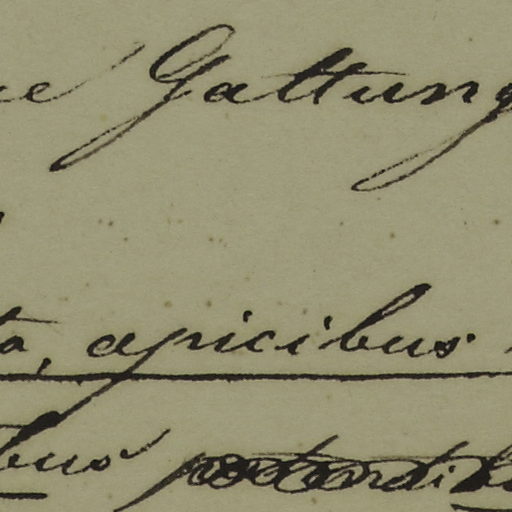 ue Gattung
ta, apicibus
bus